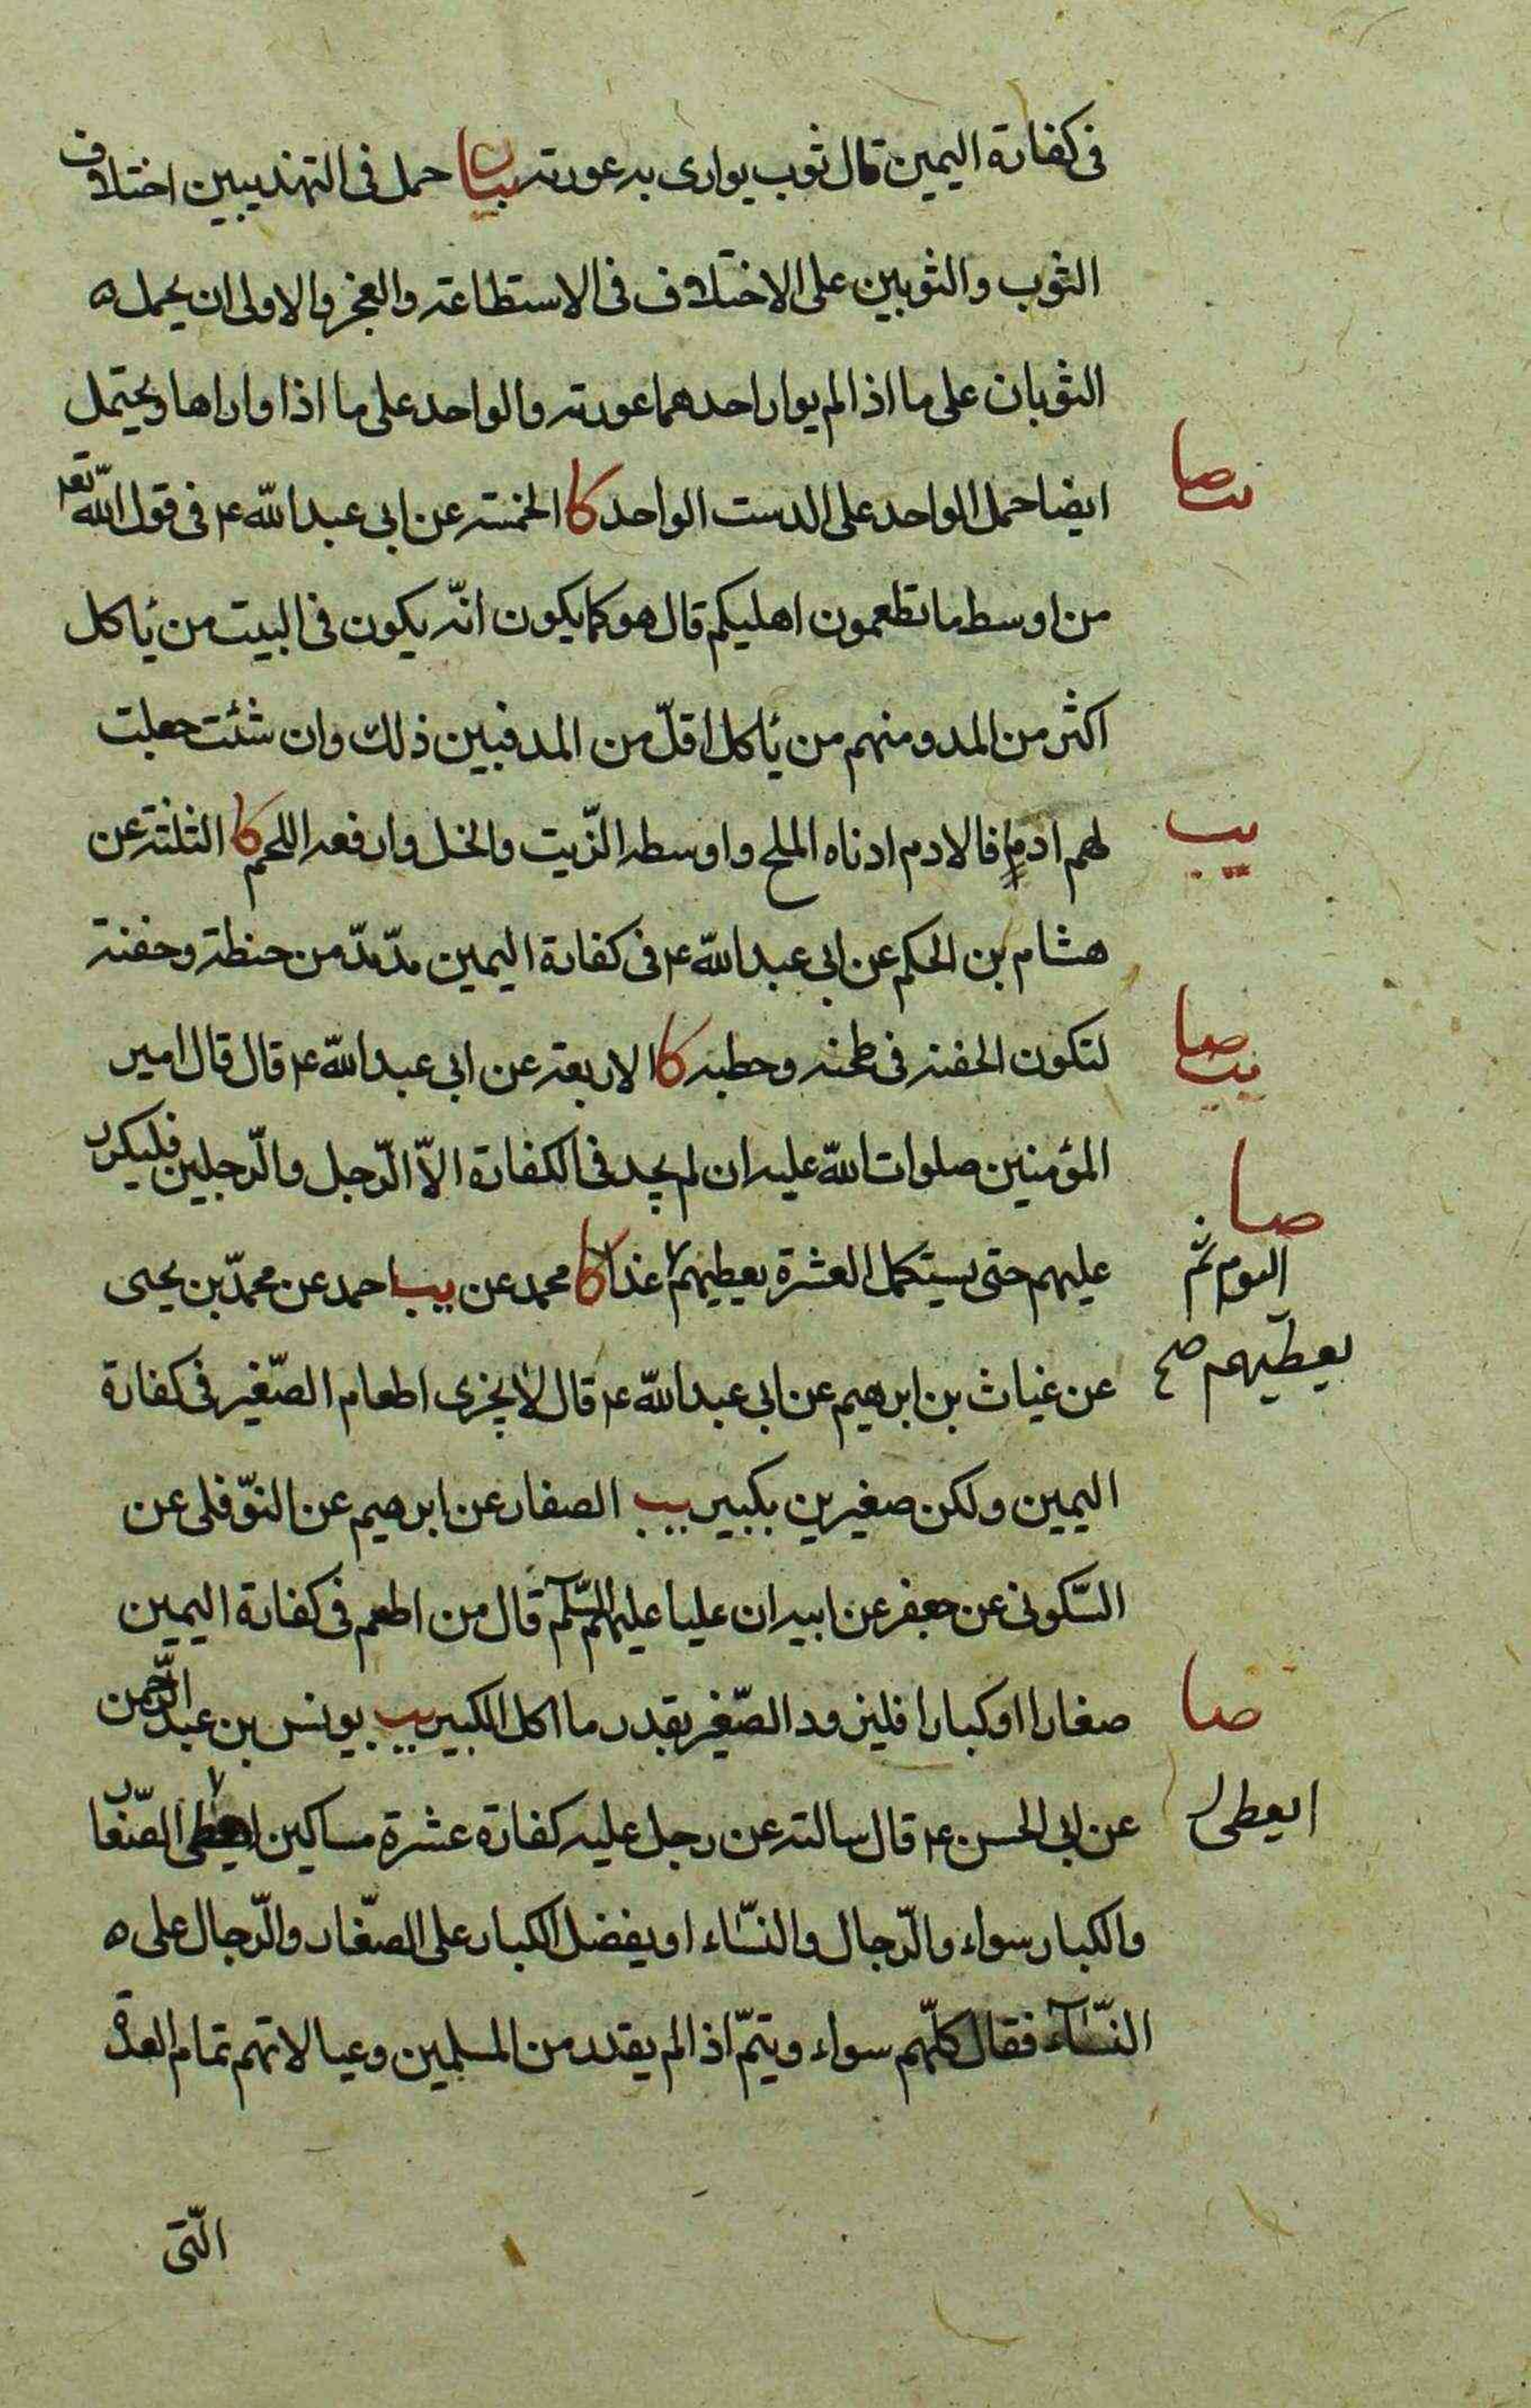 فى كفارة اليمين قال ثوب يوارى به عورته بيان حمل فى التهذيبين اختلاف
الثوب والثوبين على الاختلاف فى الاستطاعة والعجز والاولى ان يحمل ه
الثوبان على ما اذا لم يوار احدهما عورته والواحد على ما اذا واراها ويحتمل
ايضا حمل الواحد على الدست الواحد كا الخمسة عن ابى عبد الله ع فى قول الله تعا
من اوسط ما تطعمون اهليكم قال هو كما يكون انّه يكون فى البيت من يأكل
اكثر من المد ومنهم من يأكل اقلّ من المد فبين ذلك وان شئت جعلت
يب
لهم ادمٍا فالادم ادناه الملح واوسطه الزّيت والخل وارفعه اللحم كا الثلثة عن
هشام بن الحكم عن ابى عبد الله ع فى كفارة اليمين مدّ مدّ من حنطة وحفنة
لتكون الحفنة فى طحنه وحطبه كا الاربعة عن ابى عبد الله ع قال قال امير
المؤمنين صلوات الله عليه ان لم يجد فى الكفارة الاّ الرّجل والرّجلين فليكرر
صا
عليهم حتى يستكمل العشرة يعطيهم غدا كا محمد عن يب احمد عن محمّد بن يحيى
اليوم ثم
يعطيهم صح
عن غياث بن ابرهيم عن ابى عبد الله ع قال لا يجزى اطعام الصّغير فى كفارة
اليمين ولكن صغيرين بكبير يب الصفار عن ابرهيم عن النوّفلى عن
السّكونى عن جعفر عن ابيه ان عليا عليهم السّلم قال من اطعم فى كفارة اليمين
صا
صغارا اوكبارا فليزود الصّغير بقدر ما اكل الكبير يب يونس بن عبد الرّحمن
عن ابى الحسن ع قال سالته عن رجل عليه كفارة عشرة مساكين ايعطى الصّغار
ايعطى
والكبار سواء والرّجال والنسّاء او يفضل الكبار على الصغّار والرّجال على ه
النسّاء فقال كلّهم سواء ويتمّ اذا لم يقدر من المسلمين وعيالاتهم تمام العدة
الّتى